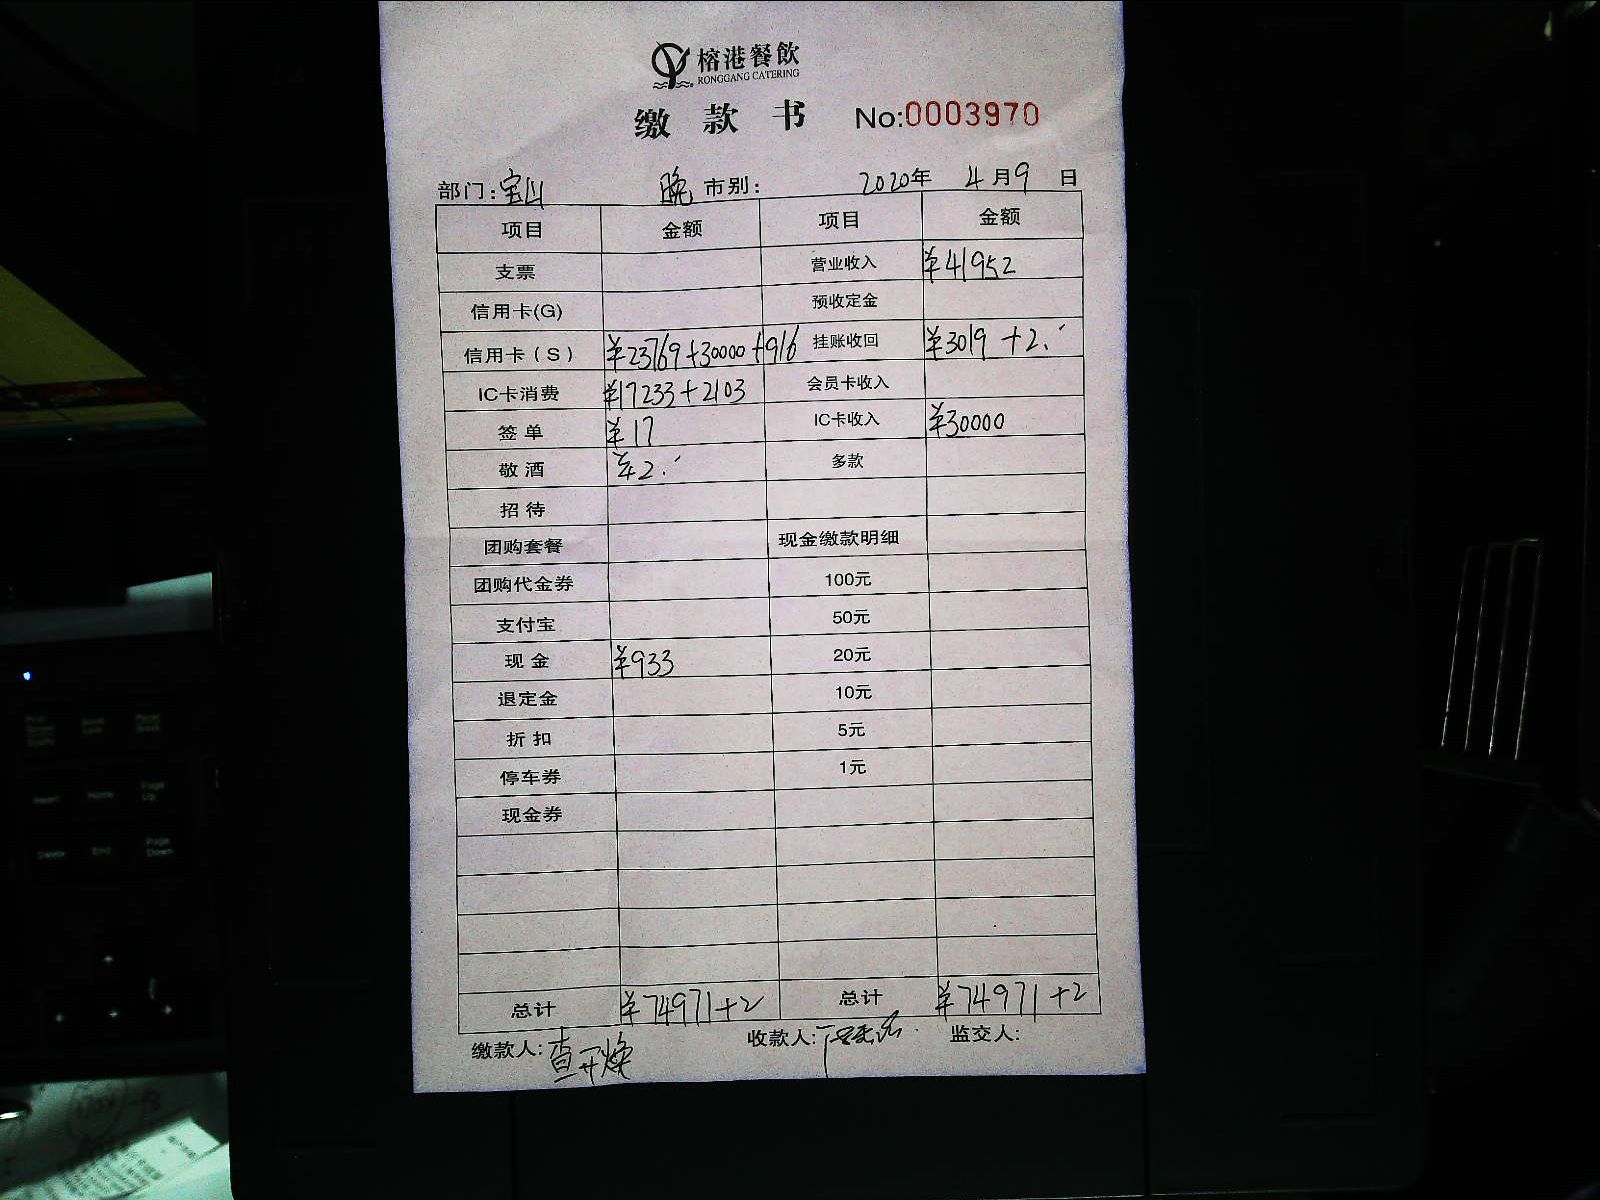 榕港餐飲
RONGGANG CATERING
缴 款 书 No:0003970
部门:宝山 晚 市别: 2020年 4月9 日
项目 金额 项目 金额
支票 营业收入 ¥41952
信用卡(G) 预收定金
信用卡(S) ¥23769+30000+916 挂账收回 ¥3019 +2.
IC卡消费 ¥17233+2103 会员卡收入
签单 ¥17 IC卡收入 ¥30000
敬酒 ¥2. 多款
招待
团购套餐 现金缴款明细
团购代金券 100元
支付宝 50元
现金 ¥933 20元
退定金 10元
折扣 5元
停车券 1元
现金券
总计 ¥74971+2 总计 ¥74971+2
缴款人:查开焕 收款人: 监交人: